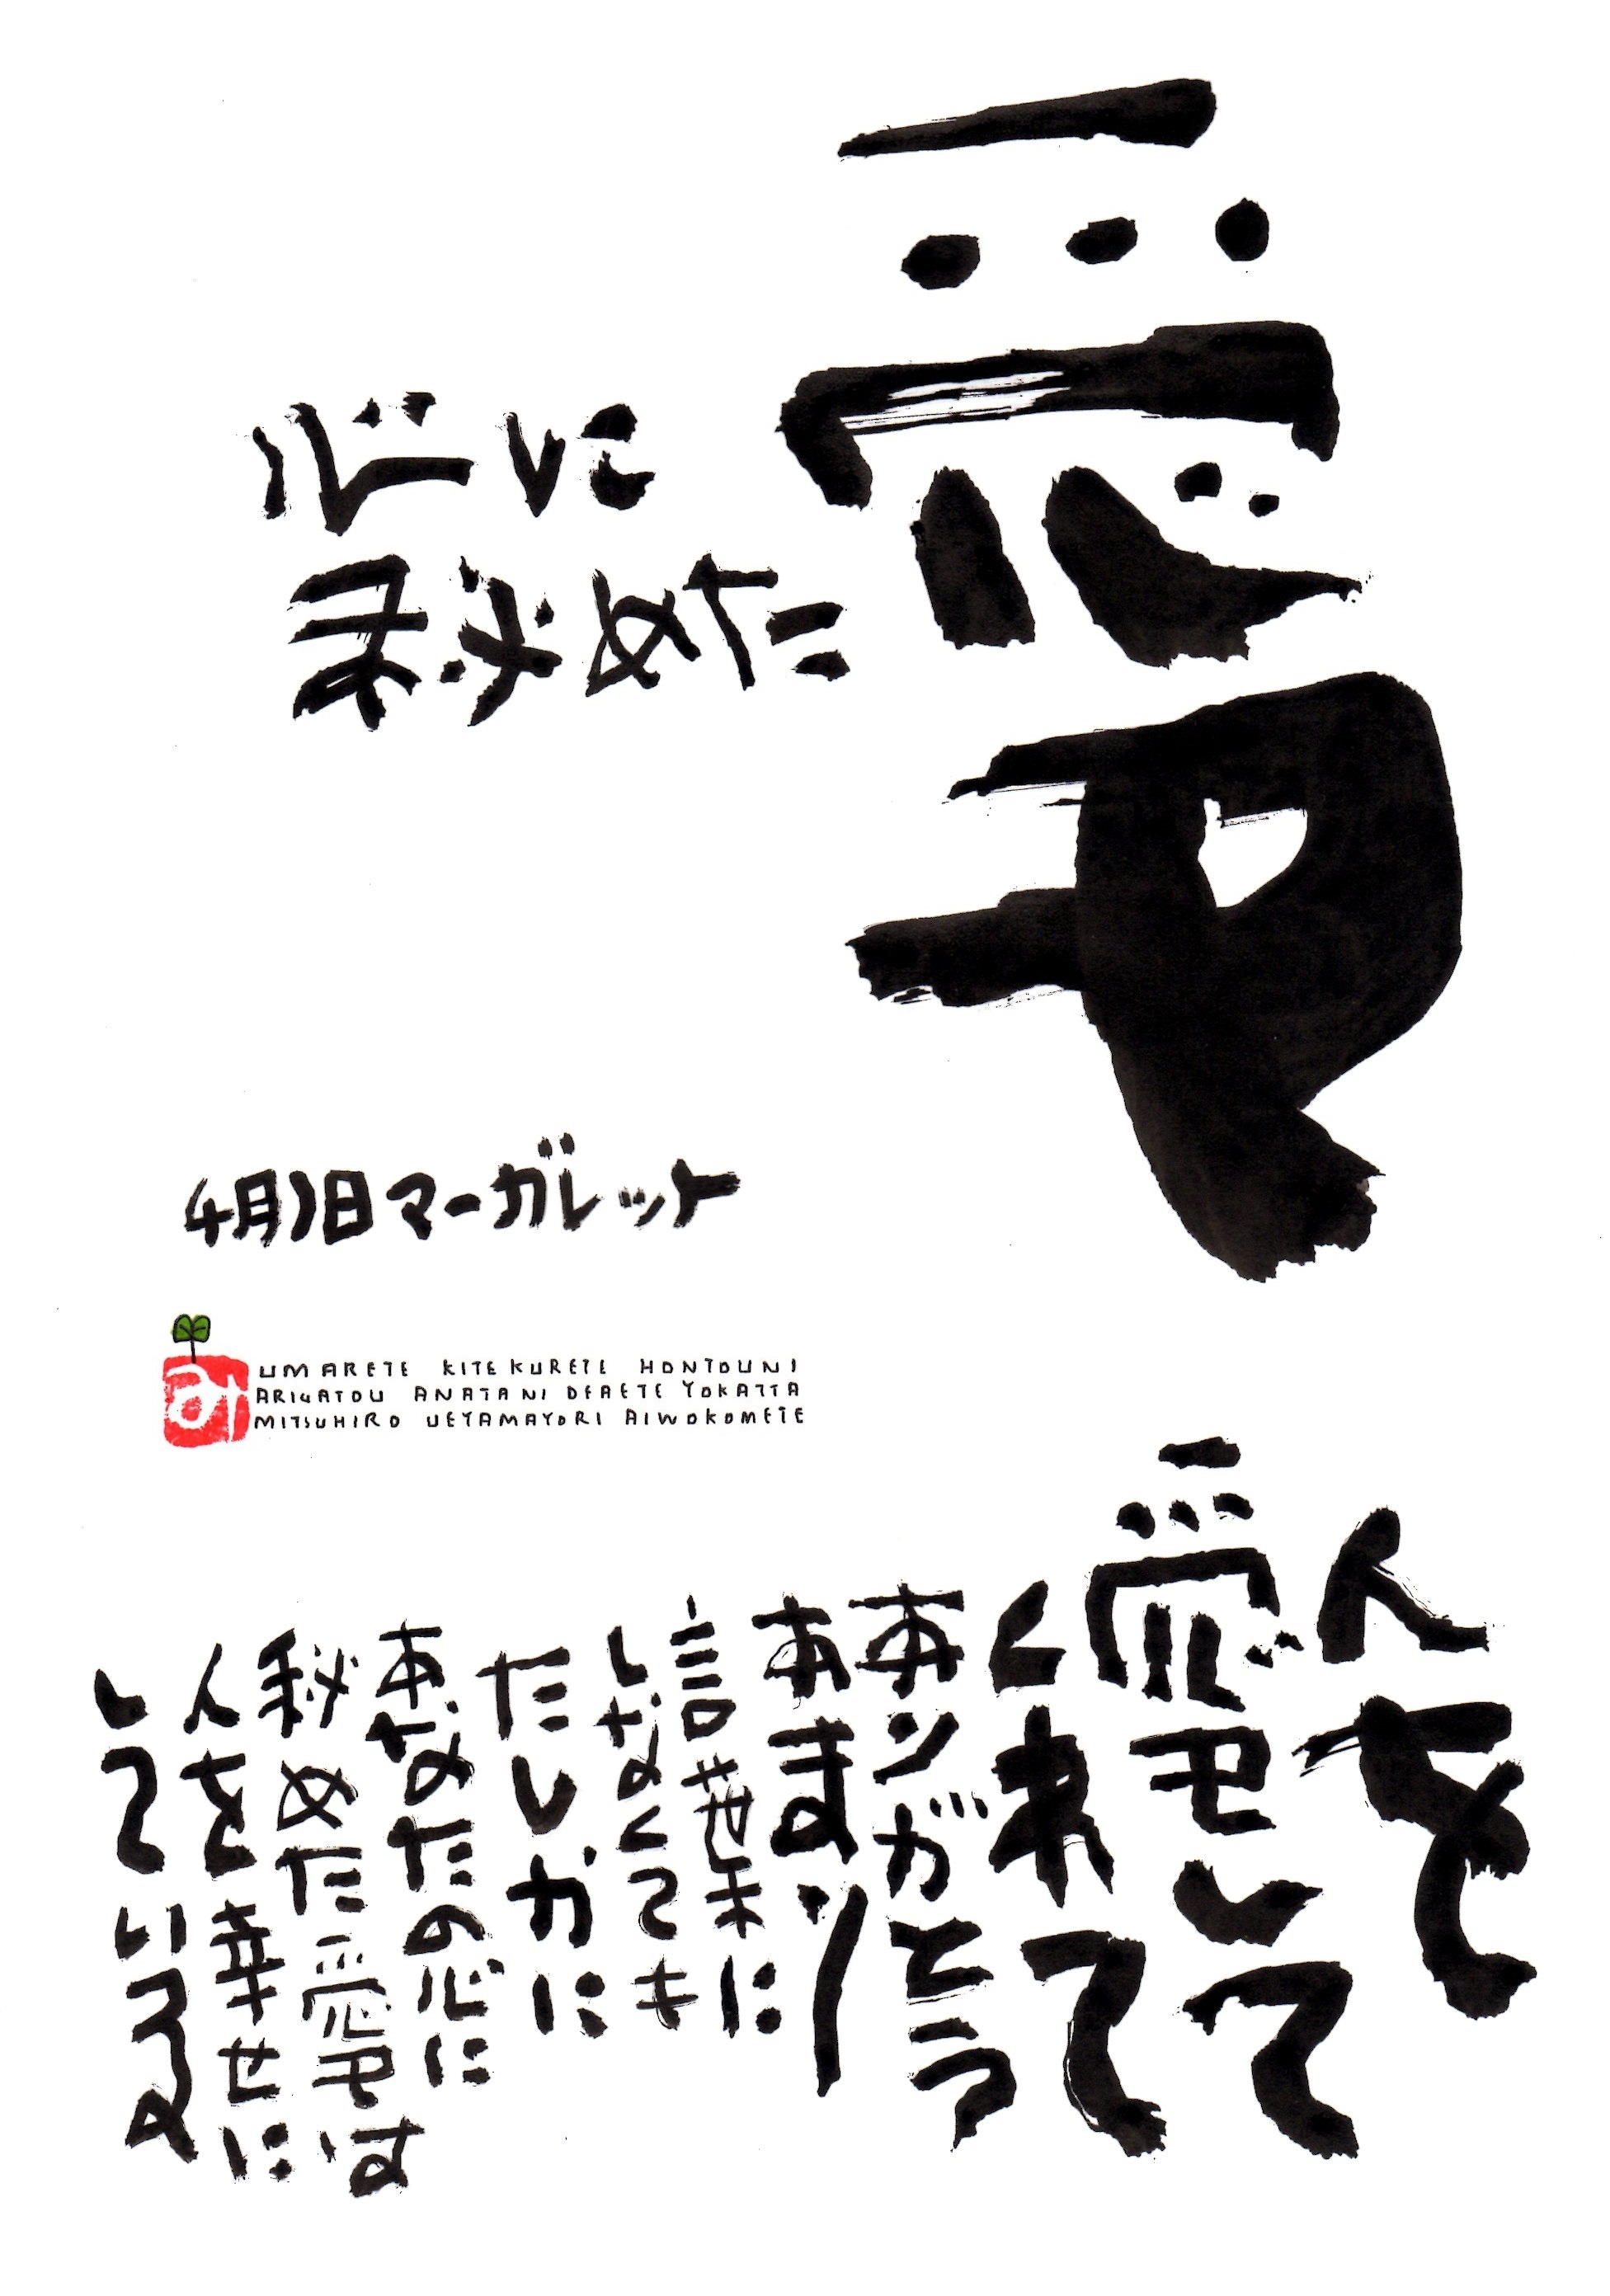 愛
心に
秘めた
4月1日マーガレット
み
UMARETE KITEKURETE HONTOUNI
ARIGATOU ANATANI DEAETE YOKATTA
MITSUHIRO UEYAMAYORI AIWOKOMETE
人を
愛して
くれて
ありがとう
あまり
言葉に
しなくても
たしかに
あなたの心に
秘めた愛は
人を幸せに
している